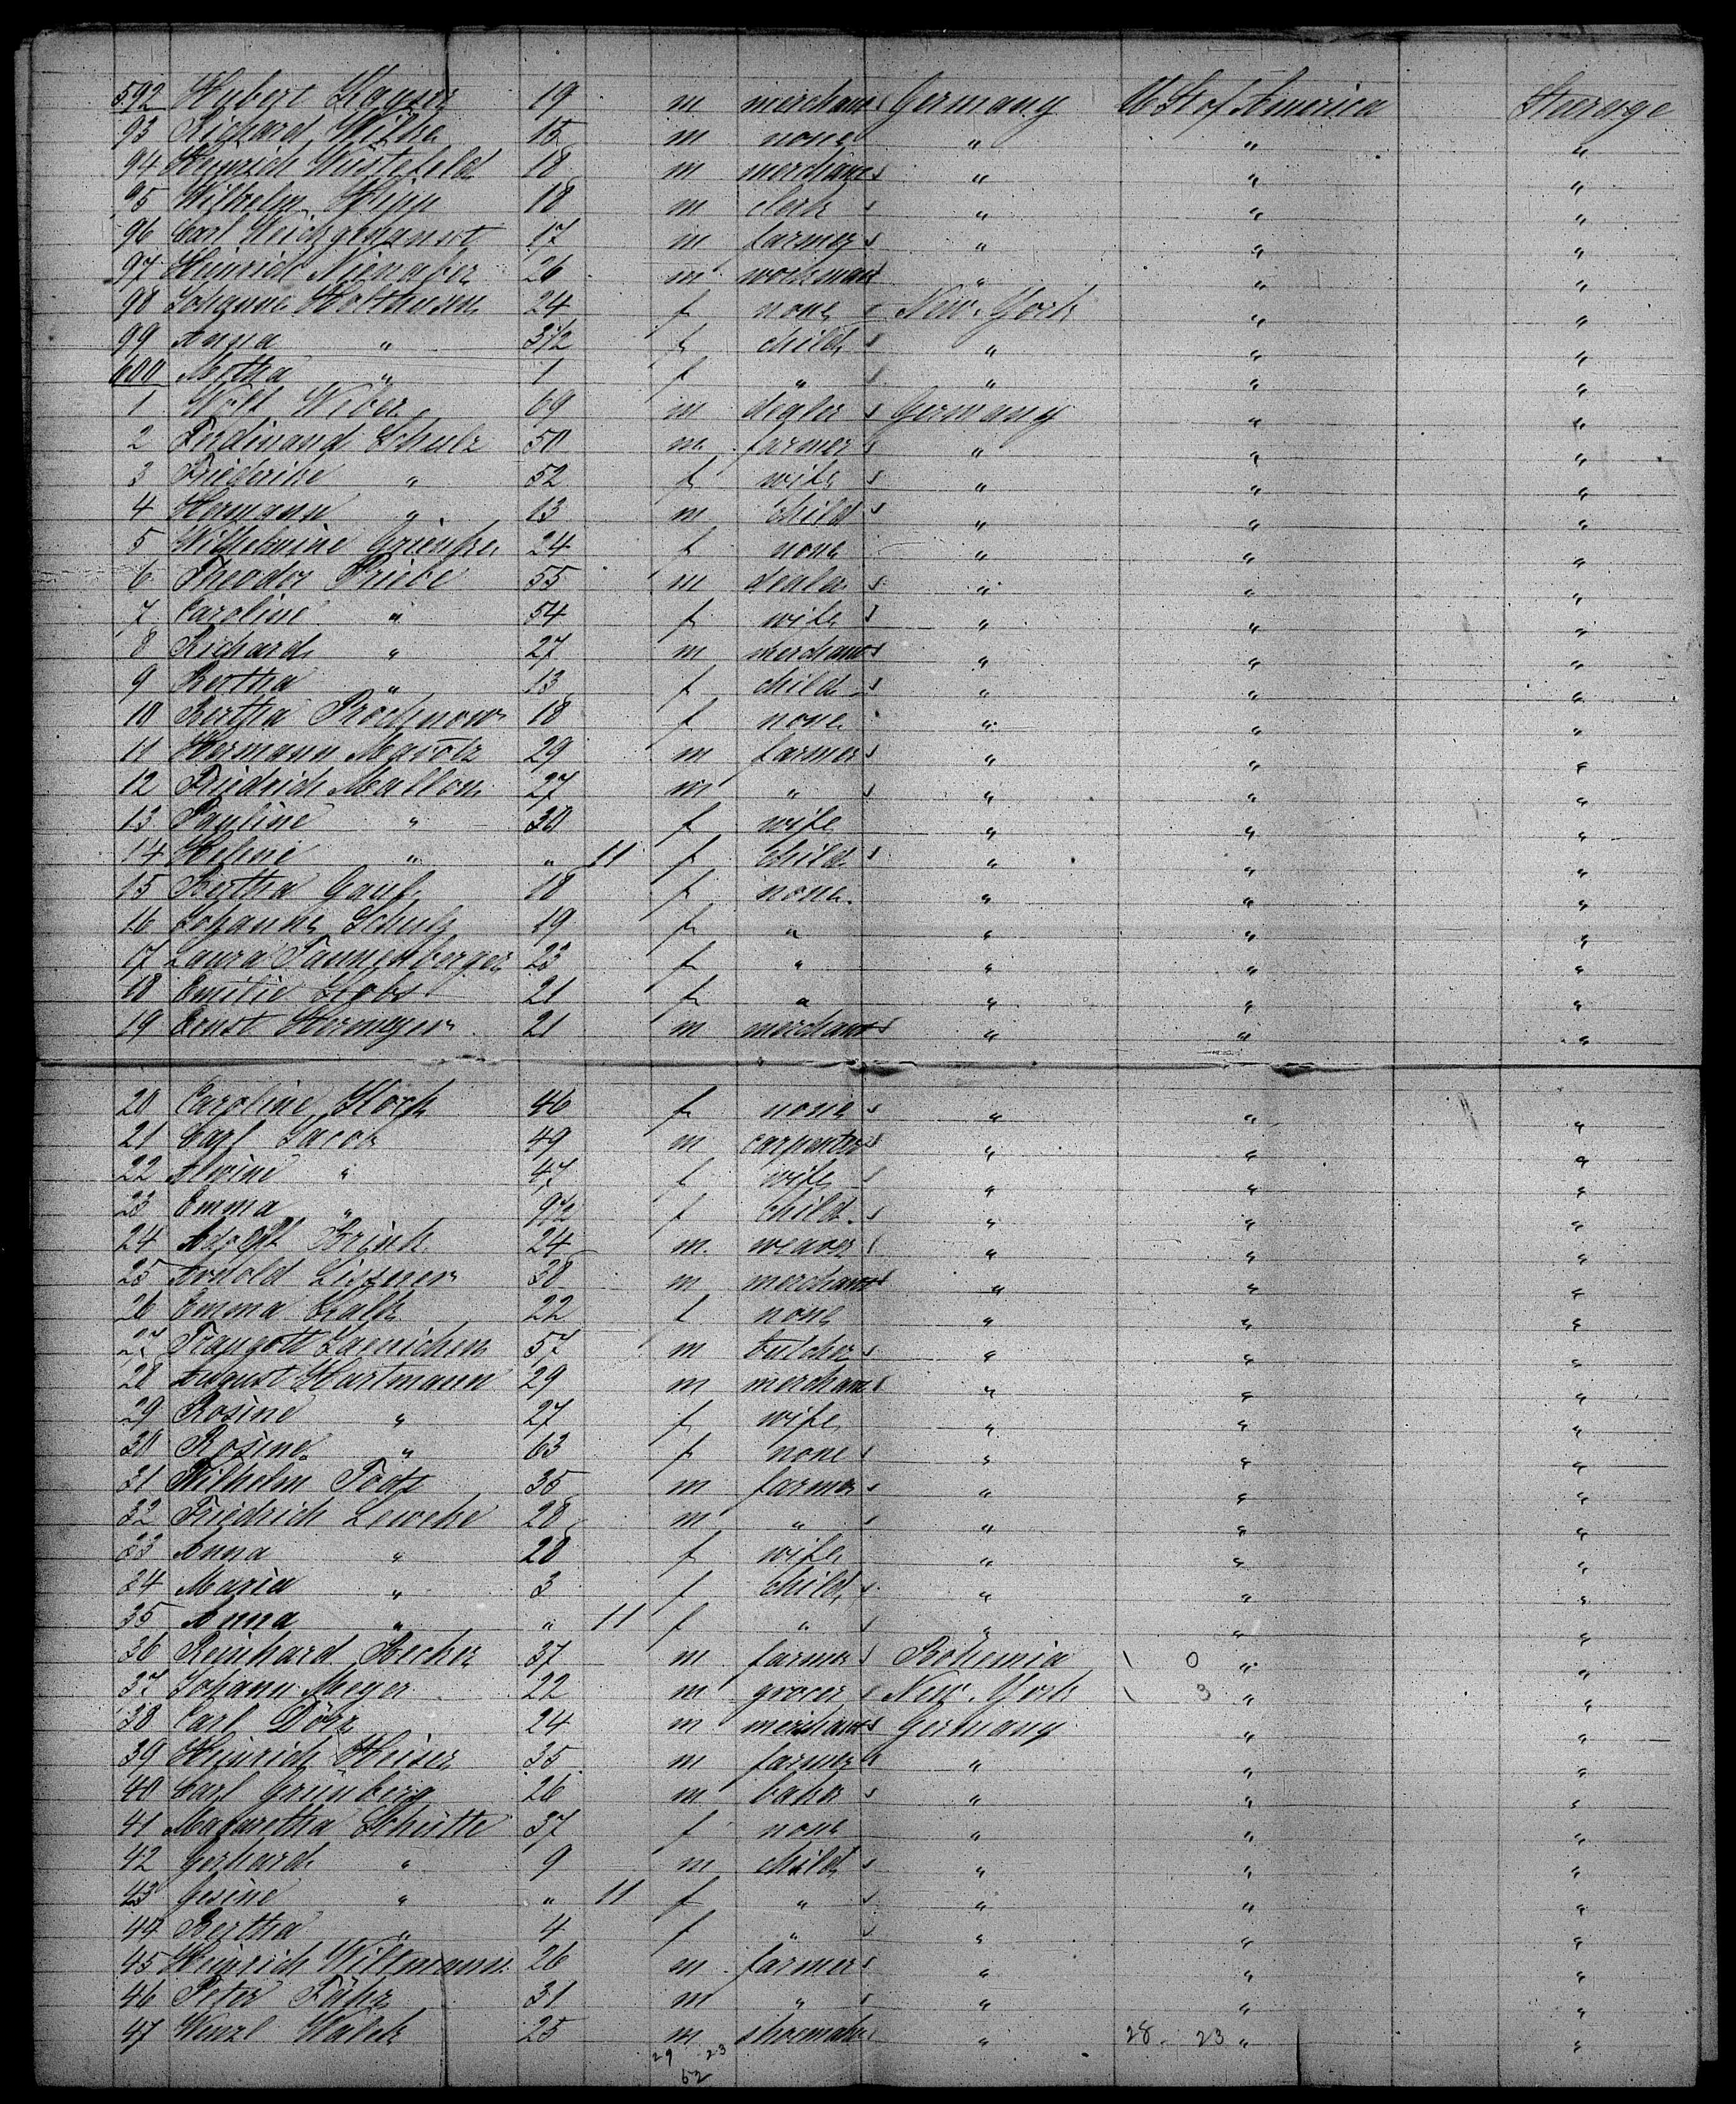 592 Hubert Kayser 19 m merchant s Germany U St of America Steerage
93 Richard Wilke 15 m none " " "
94 Heinrich Wüstefeld 18 m merchant s " " "
95 Wilhelm Hipp 18 m clerk s " " "
96 Carl 17 m farmer s " " "
97 Heinrich Nienaber 26 m workman " " "
98 Johanne Holthusen 24 f none s New York " "
99 Anna " 3 1/2 f child s " " "
600 Metha " 1 f " s " " "
1 Wolf Weber 69 m dealer s Germany " "
2 Ferdinand Schulz 50 m farmer s " " "
3 Friederike " 52 f wife s " " "
4 Hermann " 13 m child s " " "
5 Wilhelmine 24 f none " " "
6 Theodor Priebe 55 m dealer s " " "
7 Caroline " 54 f wife s " " "
8 Richard " 27 m merchant s " " "
9 Bertha " 13 f child s " " "
10 Bertha Prochnow 18 f none " " "
11 Hermann 29 m farmer s " " "
12 Friedrich Mallon 27 m " s " " "
13 Pauline " 30 f wife " " "
14 Helene " " 11 f child s " " "
15 Bertha 18 f none " " "
16 Johanne Schulz 19 f " " " "
17 Laura Tannenberger 23 f " " " "
18 Emilie 21 f " " " "
19 Ernst 21 m merchant s " " "
20 Caroline 46 f none s " " "
21 Carl Jacob 49 m carpenter s " " "
22 Alwine " 47 f wife s " " "
23 Emma " 9 1/2 f child s " " "
24 Adolph Brink 24 m weaver s " " "
25 Arnold Lissner 38 m merchant s " " "
26 Emma Kalk 22 f none " " "
27 Traugott Jaenichen 57 m butcher s " " "
28 August Hartmann 29 m merchant s " " "
29 Rosine " 27 f wife " " "
30 Rosine " 63 f none s " " "
31 Wilhelm Todt 35 m farmer s " " "
32 Friedrich Leweke 28 m " s " " "
33 Anna " 28 f wife " " "
34 Maria " 3 f child s " " "
35 Anna " " 11 f " s " " "
36 Reinhard Becker 37 m farmer s Bohemia \ 0 " "
37 Johann Meyer 22 m grocer s New York \ 3 " "
38 Carl Dörr 24 m merchant s Germany " "
39 Heinrich Heiser 35 m farmer s " " "
40 Carl Grünberg 26 m baker s " " "
41 Magaretha Schütte 37 f none " " "
42 Gerhard " 9 m child s " " "
43 Gesine " " 11 f " s " " "
44 Bertha " 4 f " s " " "
45 Heinrich Wiltmann 26 m farmer s " " "
46 Peter 31 m " s " " "
47 Wenzl 25 m shoemaker " 28 23 " "
29 23
52